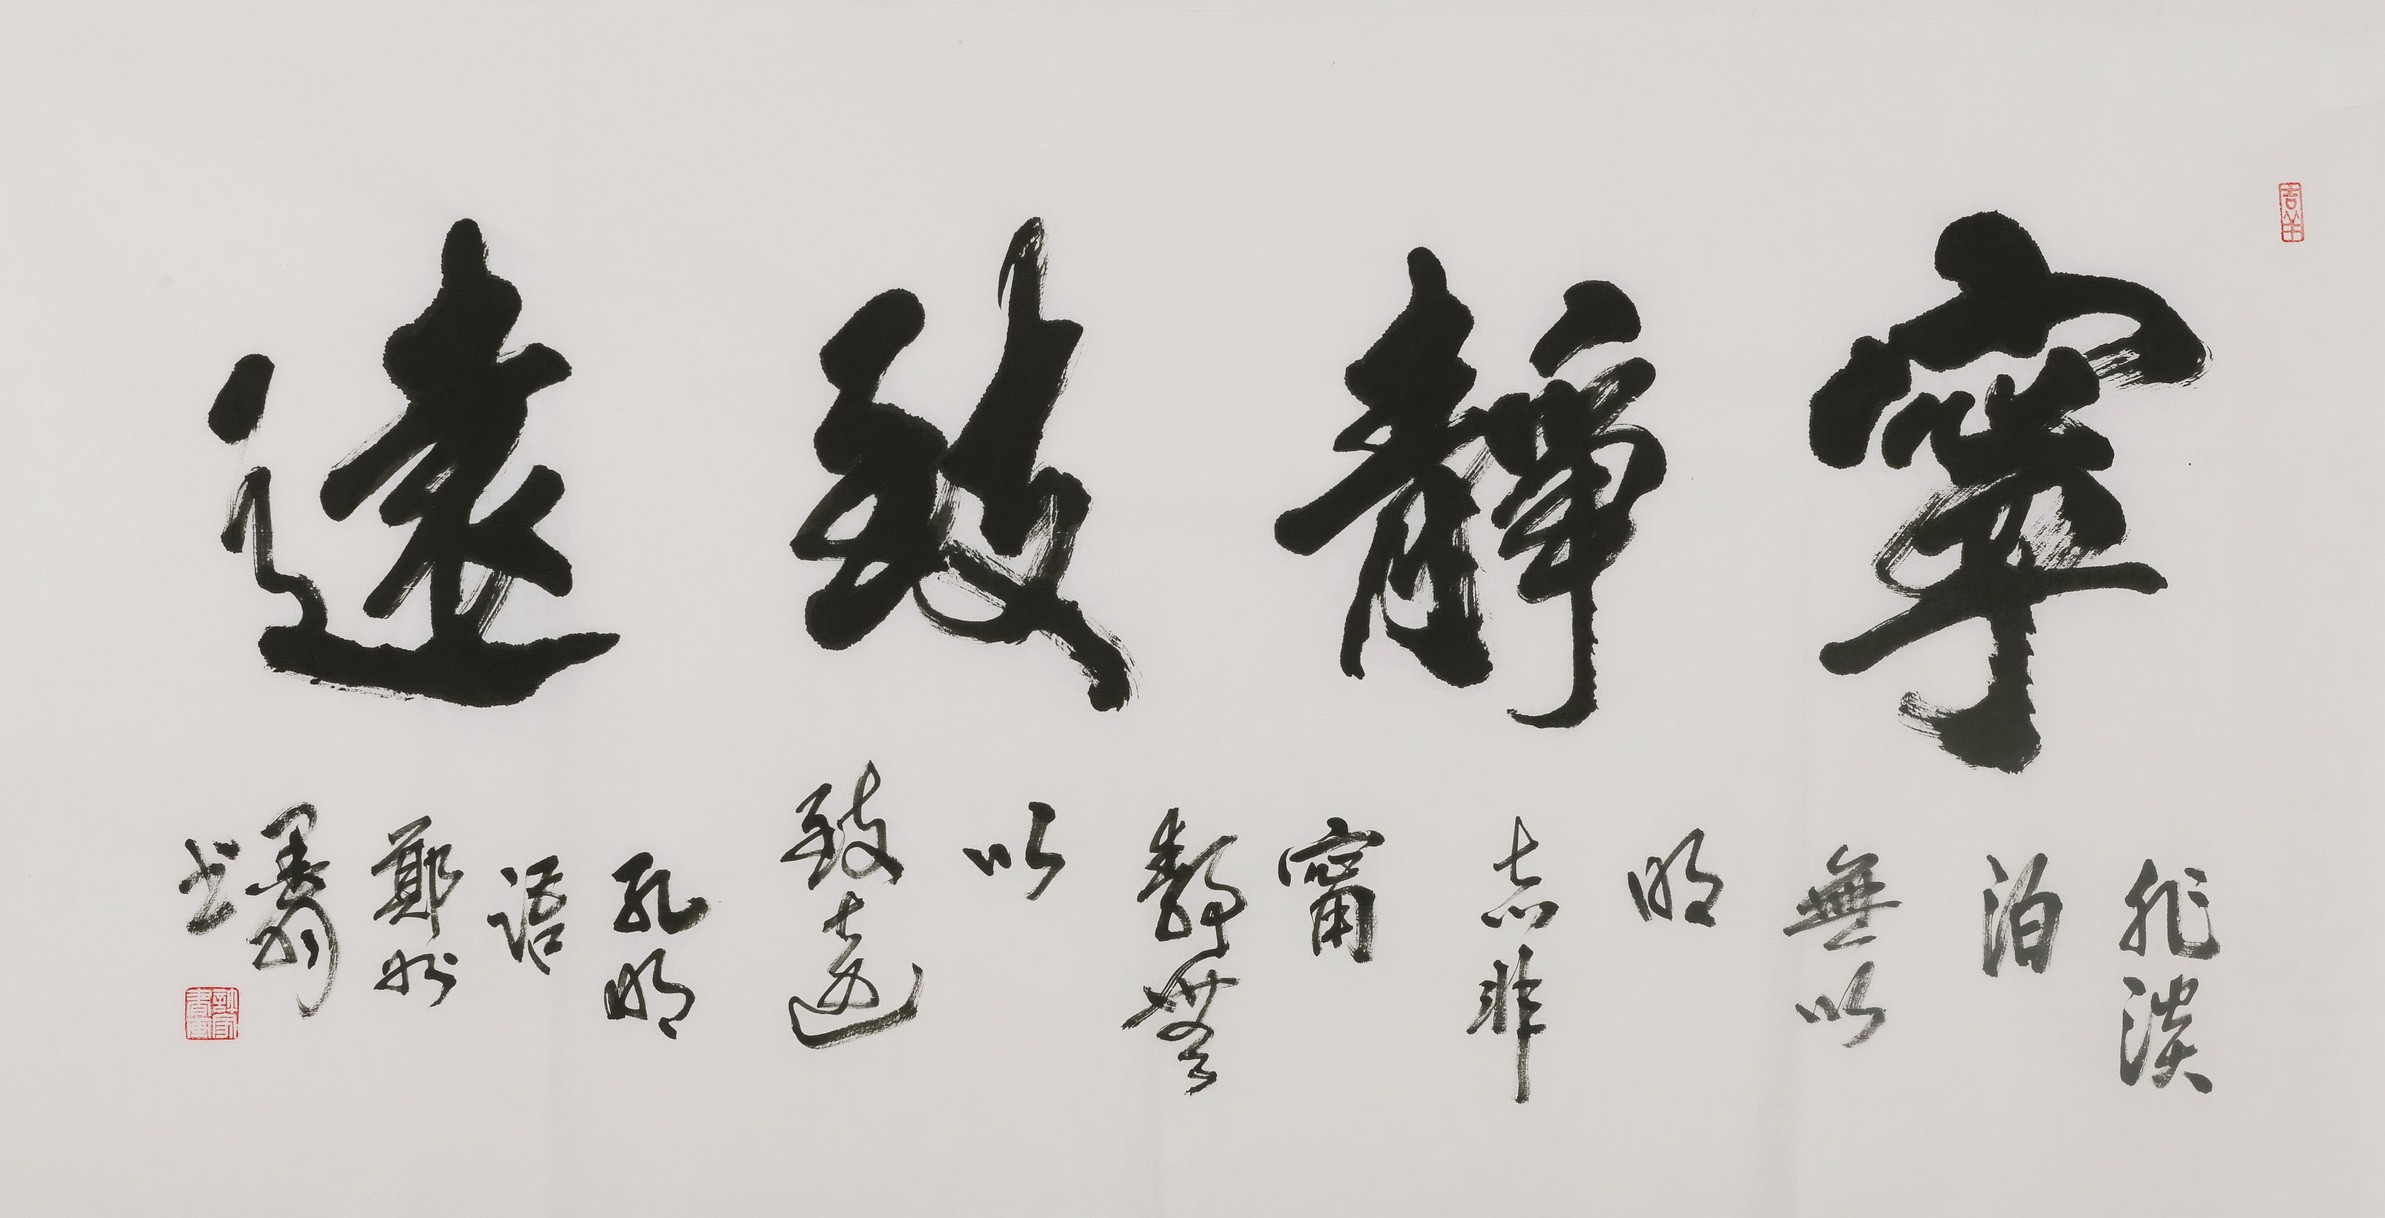 寧靜致遠
非淡
泊
無以
明
志非
寧
靜無
以
致遠
孔明
語
鄭州
墨翁
书
吉羊